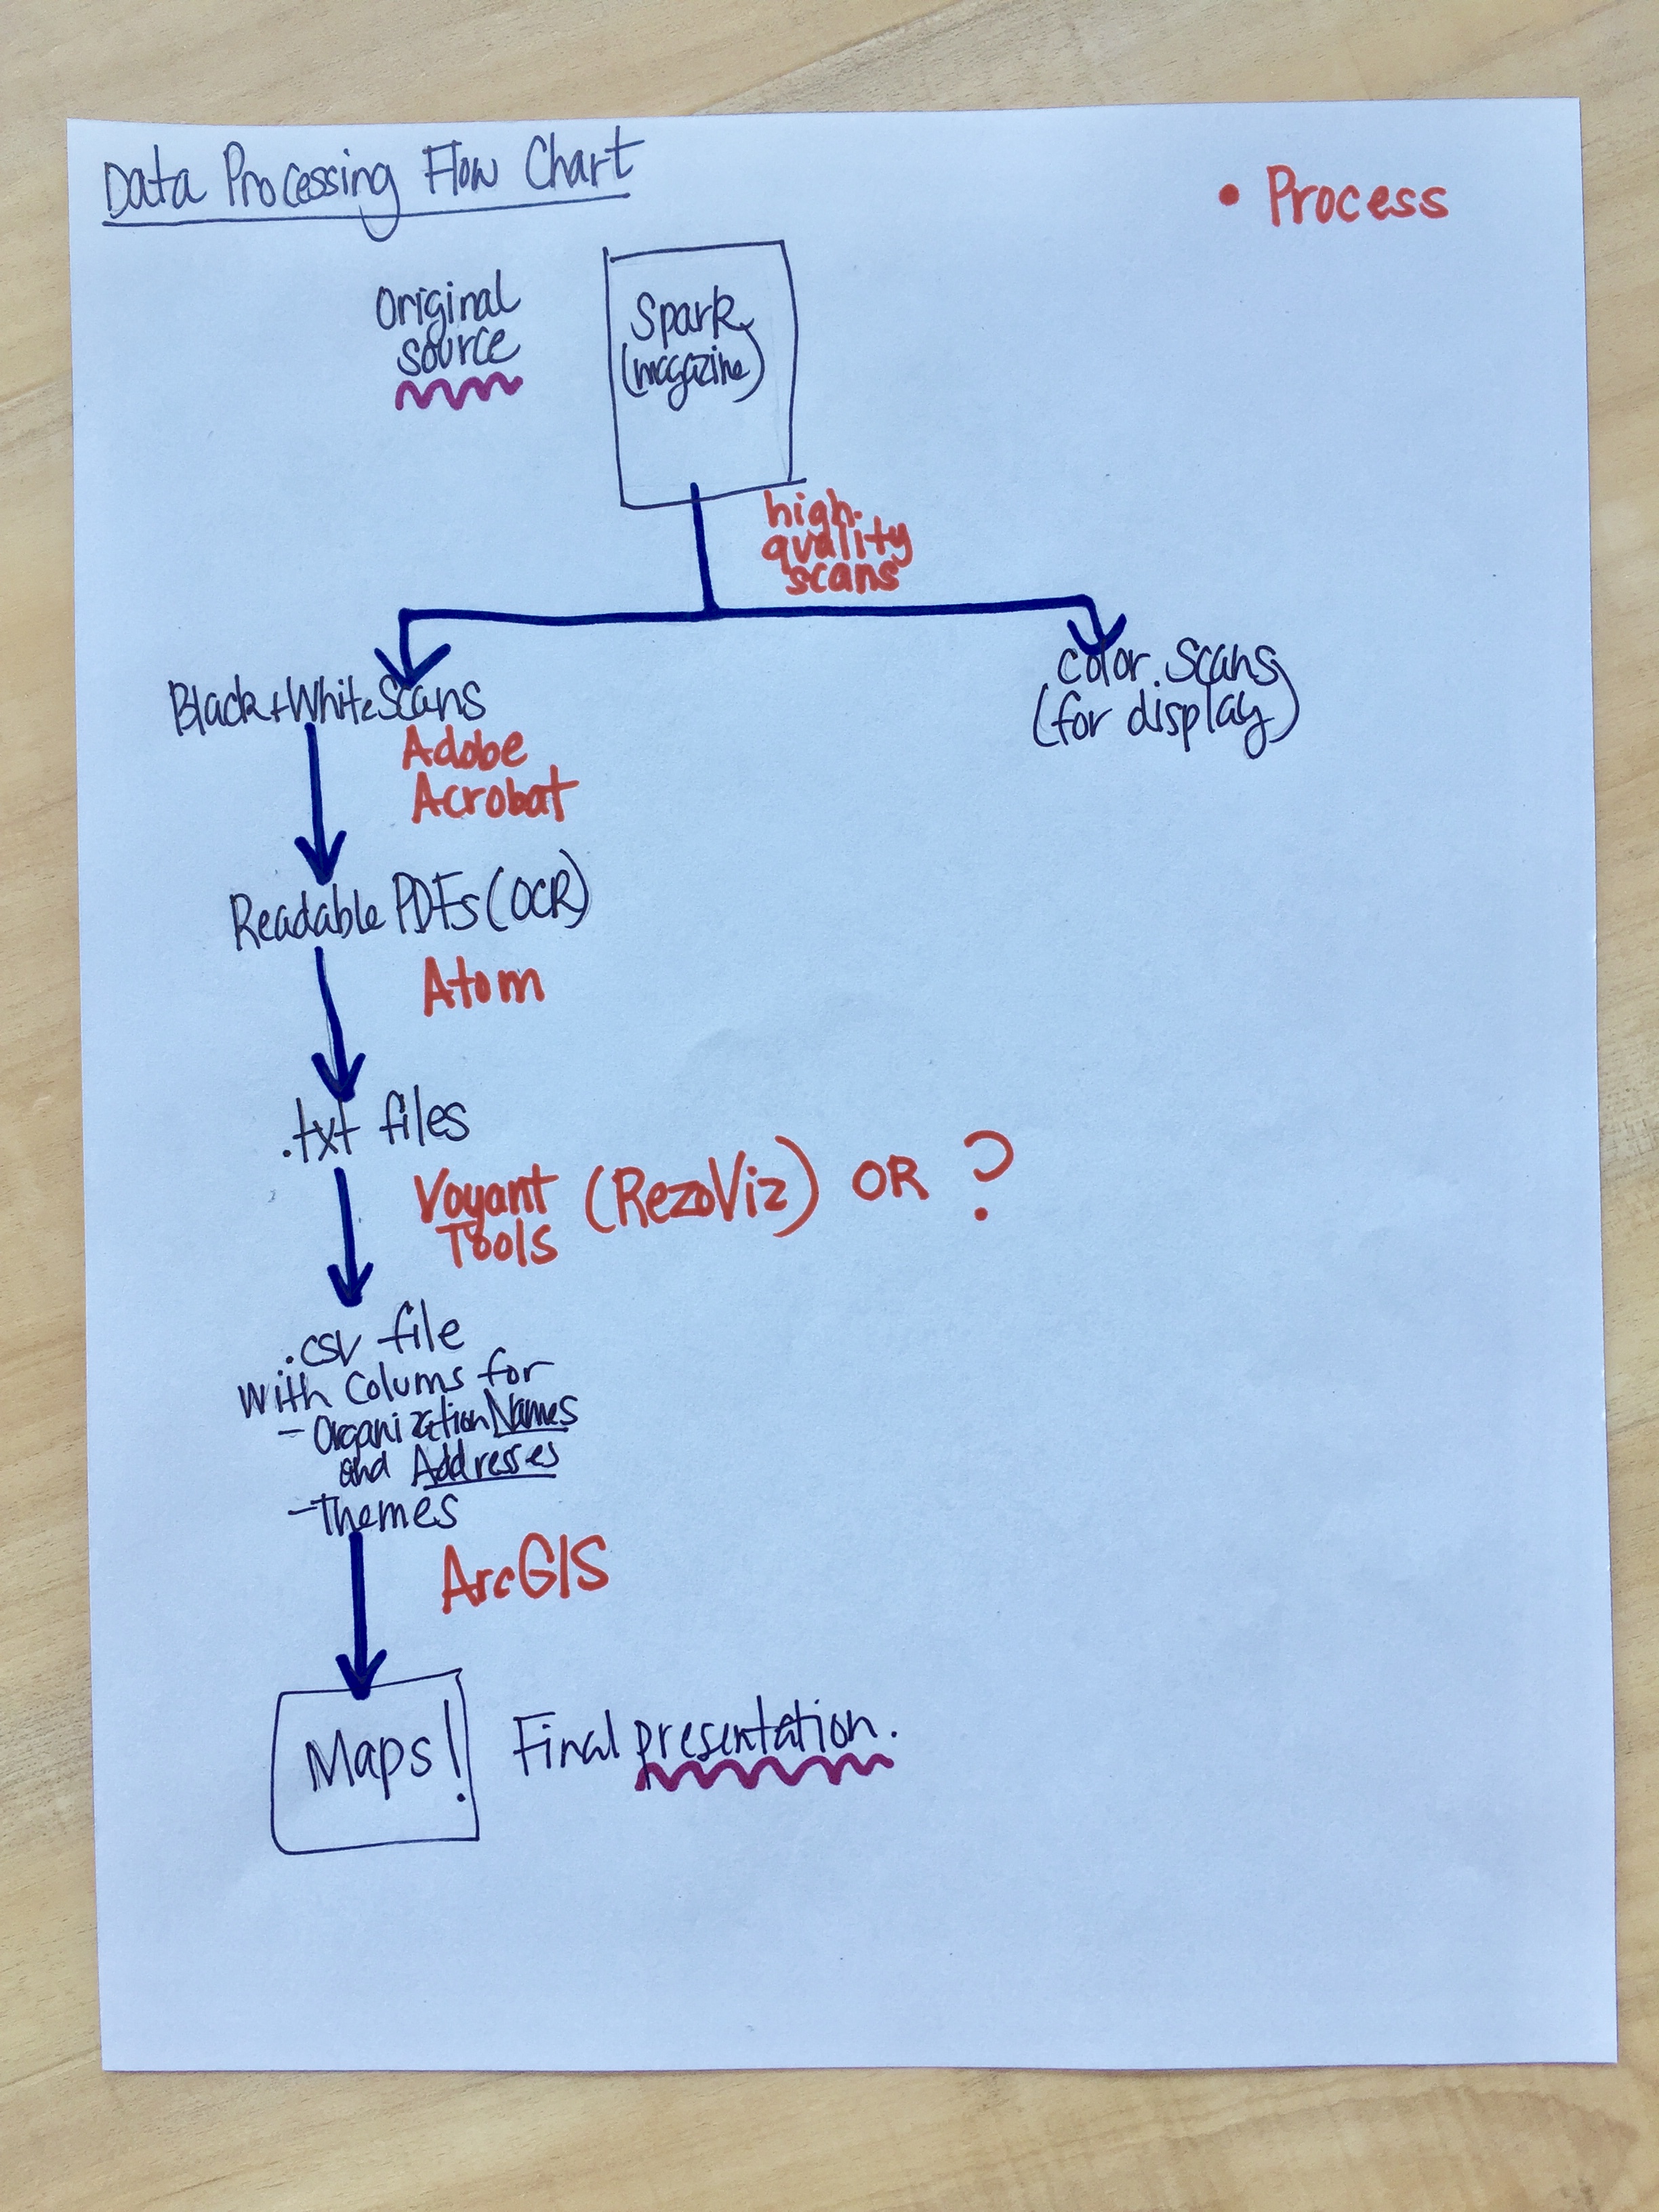 Data Processing Flow Chart
• Process
Original
source
Spark
(magazine)
high-
quality
scans
Black+White Scans
color scans
(for display)
Adobe
Acrobat
Readable PDFs (OCR)
Atom
.txt files
Voyant
Tools
(RezoViz) OR ?
.csv file
with Colums for
- Organization Names
and Addresses
- Themes
ArcGIS
Maps!
Final presentation.